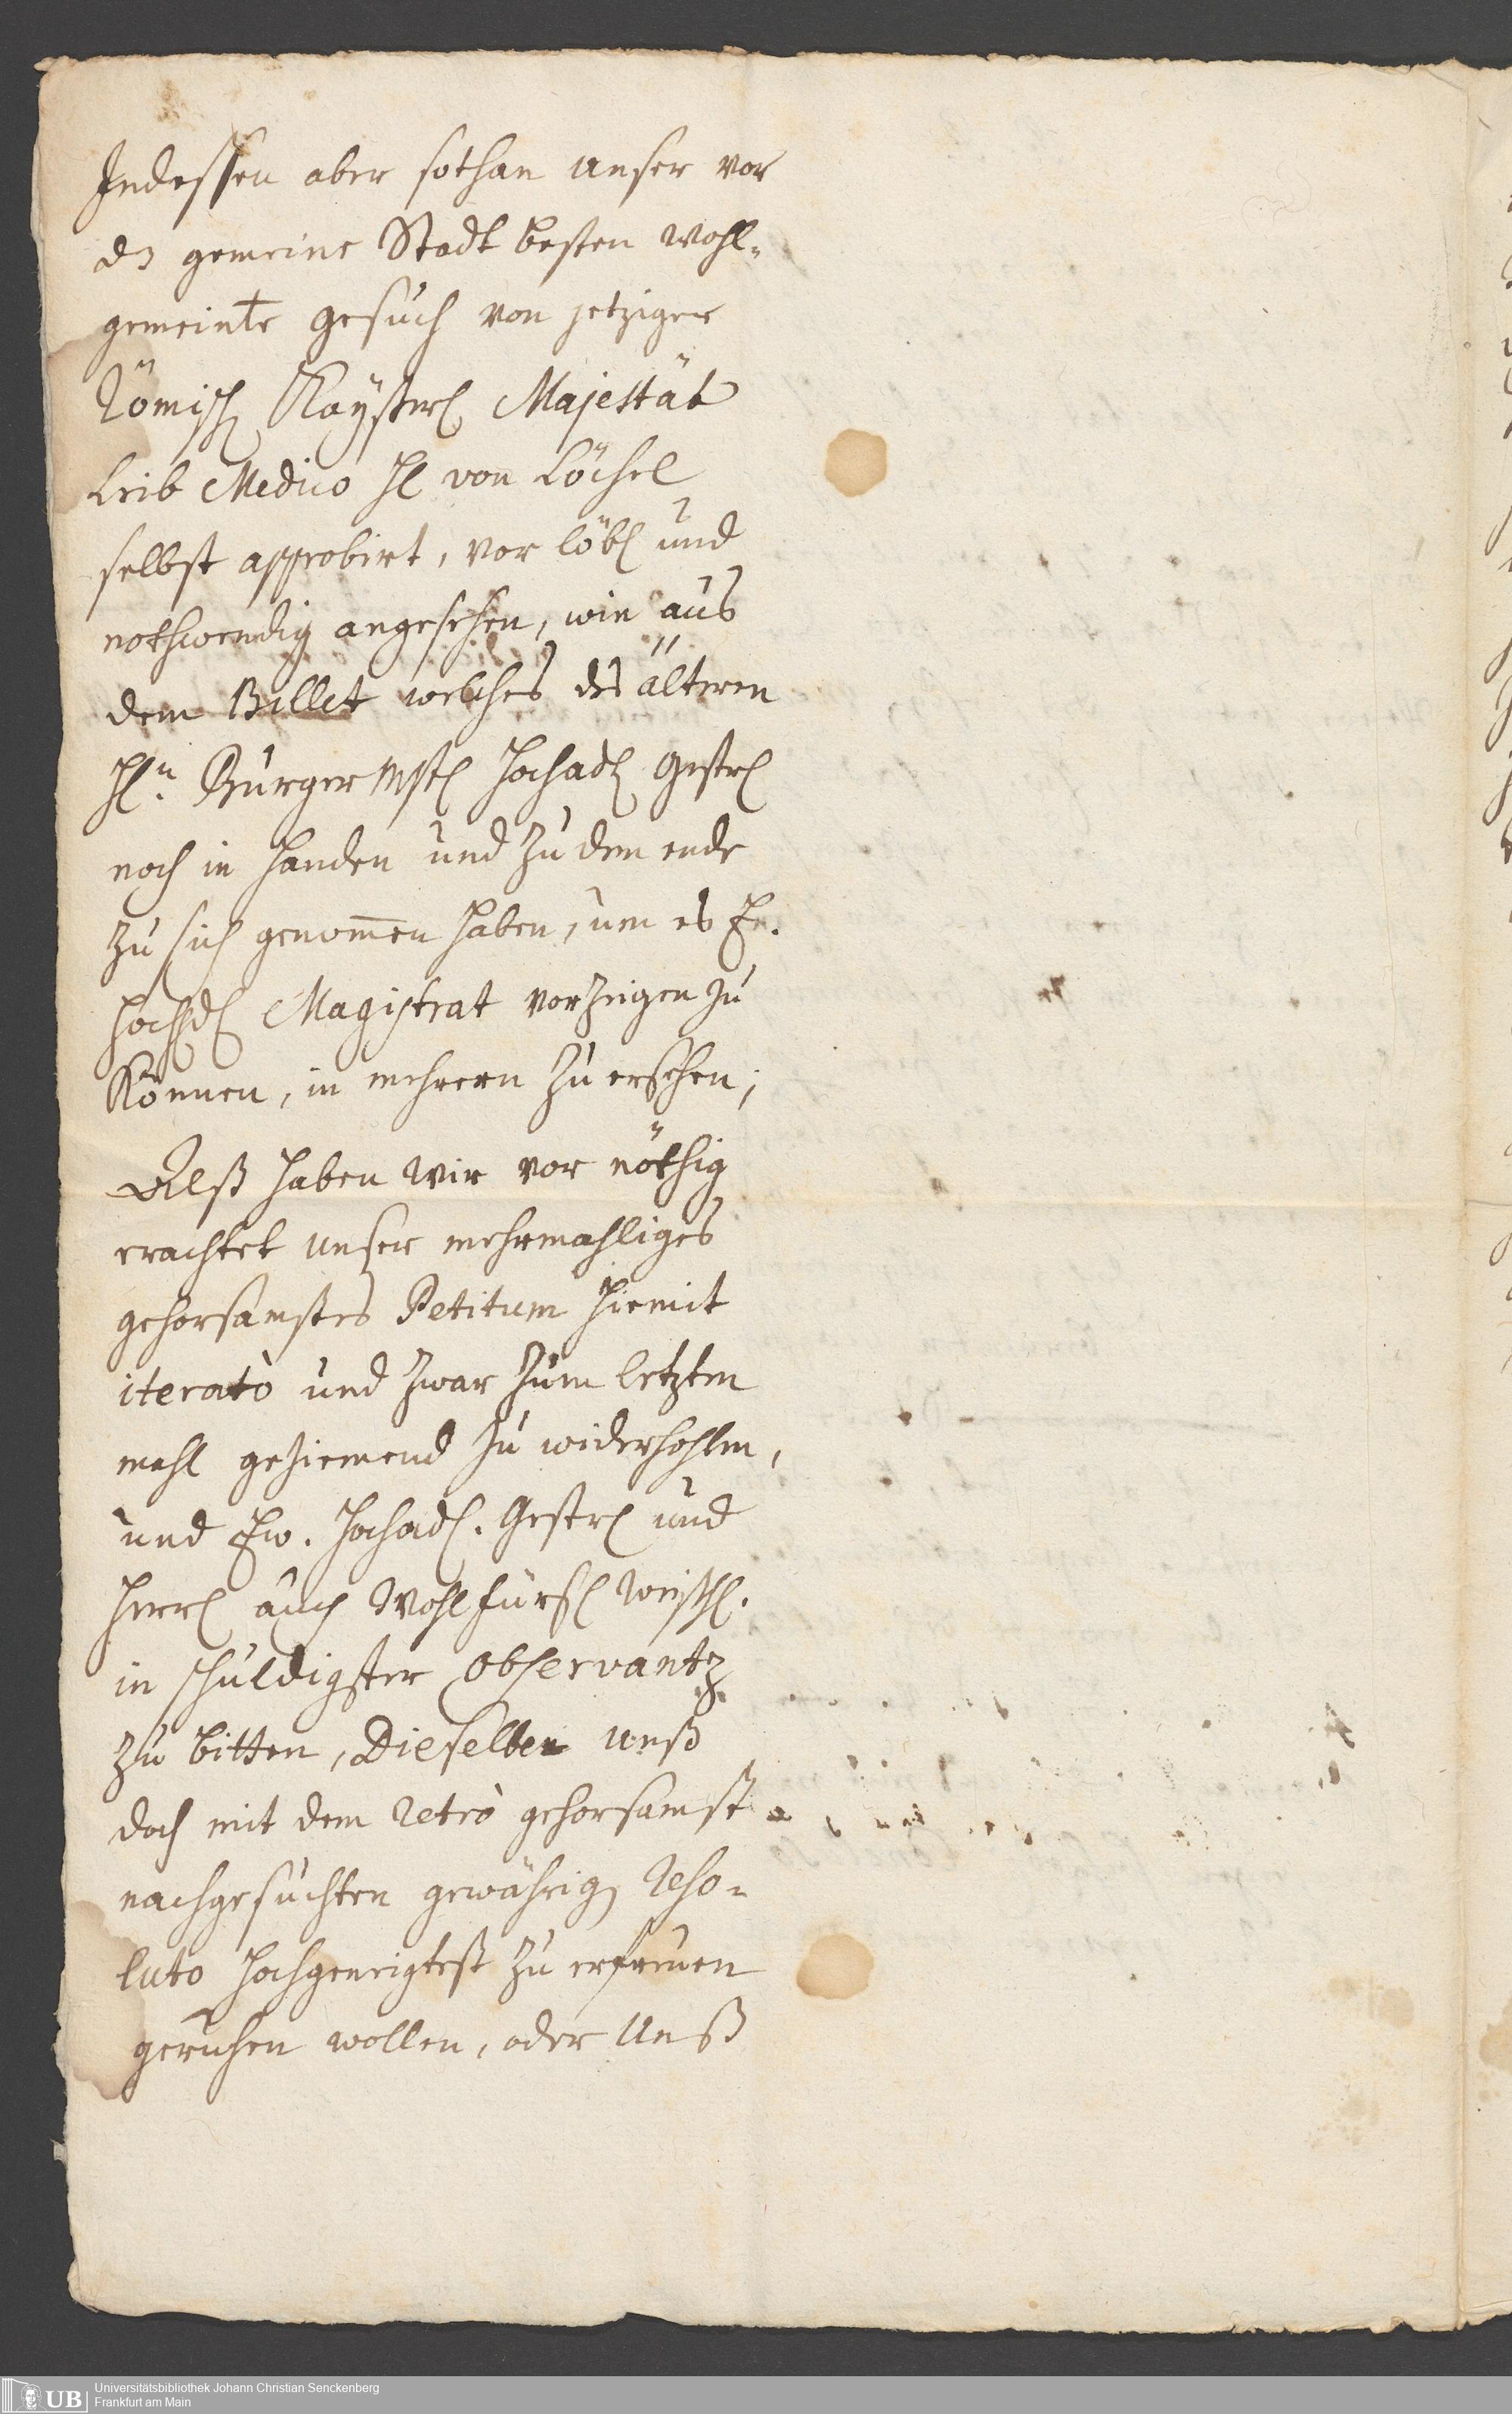 Indessen aber sothan unser vor
dz gemeine Stadt besten wohl-
gemeinte gesuch von jetziger
Römisch Kaÿserl Majestät
Leib Medico Hl von Löchel
selbst approbirt, vor löbl und
nothwendig angesehen, wie aus
dem Billet welches des älteren
Hln. Bürger Mstl Hochadl Gestrl
noch in Handen und zu dem ende
zu sich genom̅en haben, um es E.
Hochedl Magistrat vorzeigen zu
Können, in mehrern zu ersehen;
Alß haben wir vor nöthig
erachtet unser mehrmahliges
gehorsamstes Petitum hiemit
iteratò und zwar zum letzten
mahl geziemend zu widerhohlen,
und Ew. Hochadl. Gestrl und
Herrl auch Wohlfürsl Weißhl.
in schuldigster Observantz
zu bitten, Dieselben unß
doch mit dem retrò gehorsamst
nachgesuchten gewährig Reso-
luto hochgeneigtest zu erfreuen
geruhen wollen, oder Unß
UB Universitätsbibliothek Johann Christian Senckenberg
Frankfurt am Main